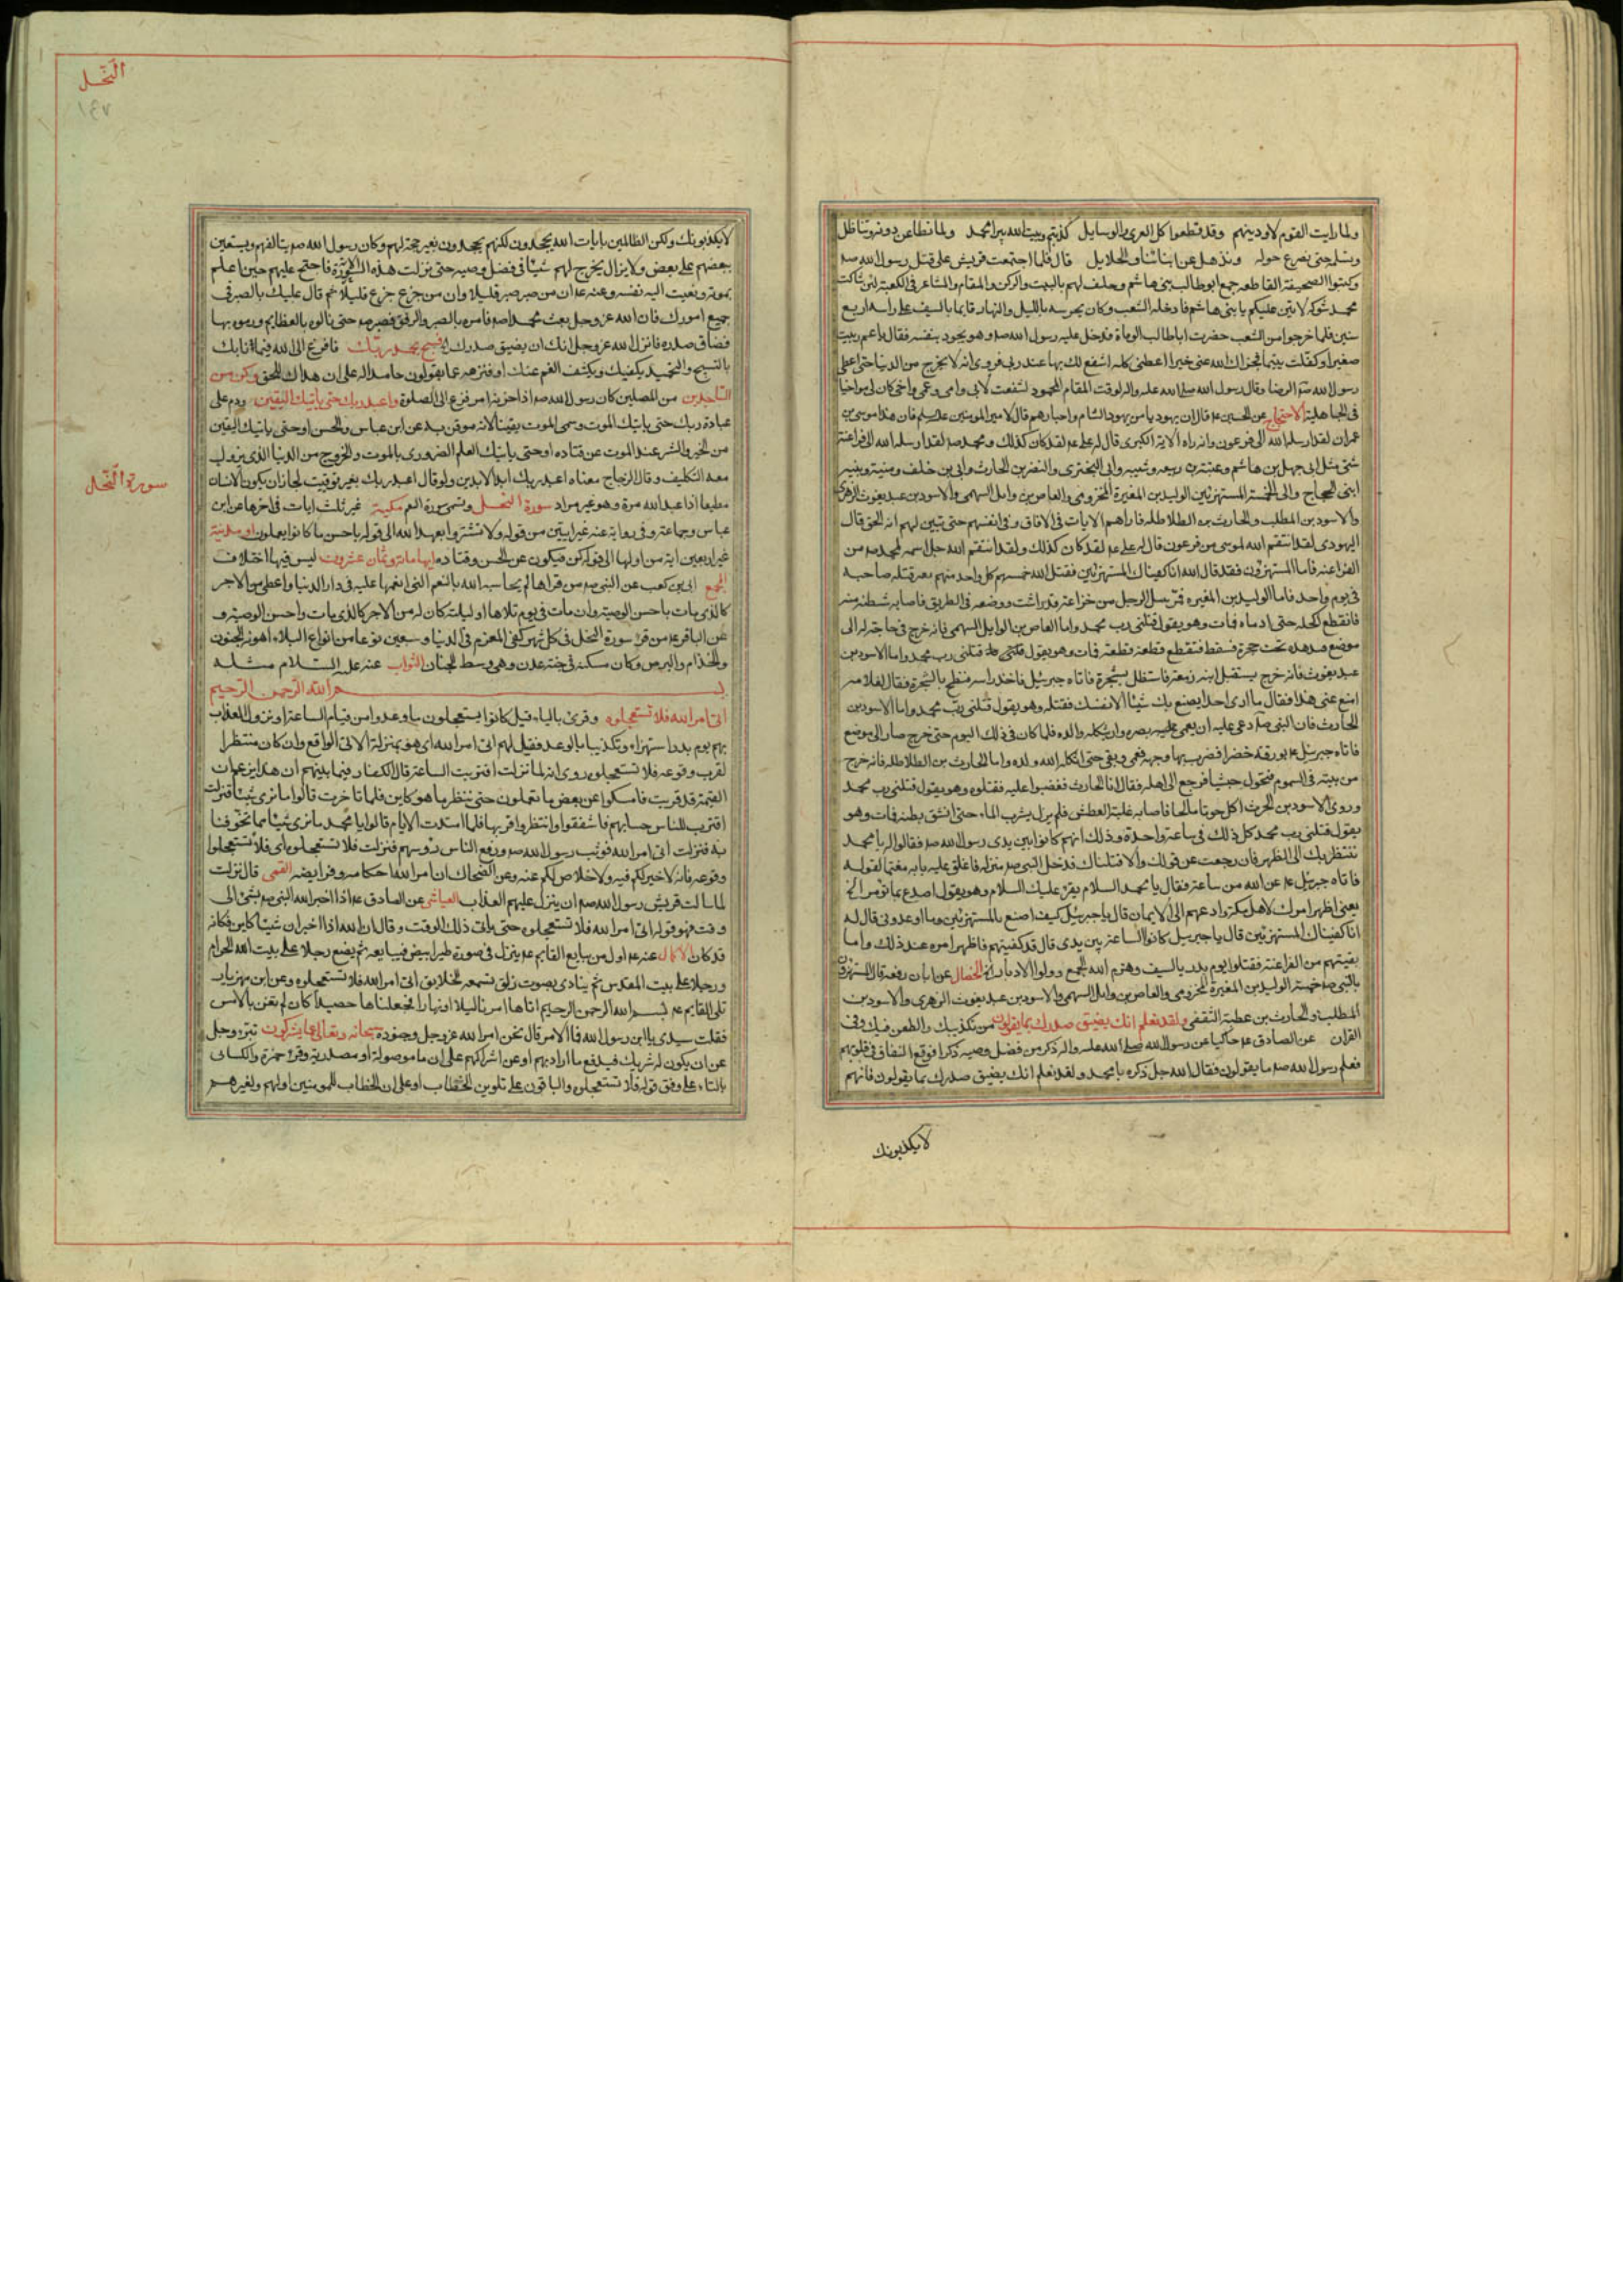 ولما رايت القوم لا ود بينهم وقد قطعوا كل العرى والوسايل كذبتم وبيت الله يبزا محمد ولما نطاعن دونه ونناظل
ونسلمه حتى نصرع حوله ونذهل عن ابنائنا والحلايل قال فلما اجتمعت قريش على قتل رسول الله صم
وكتبوا الصحيفة القاطعه جمع ابوطالب بنى هاشم وحلف لهم بالبيت والركن والمقام والمشاعر فى الكعبة لئن شاكت
محمد شوكه لاتين عليكم يا بنى هاشم فادخله الشعب وكان يحرسه بالليل والنهار قايما بالسيف على راسه اربع
سنين فلما خرجوا من الشعب حضرت اباطالب الوفاة فدخل عليه رسول الله صم وهو يجود بنفسه فقال يا عم ربيت
صغيرا وكفلت يتيما فجزاك الله عنى خيرا اعطنى كلمه اشفع لك بها عند ربى فروى انه لا يخرج من الدنيا حتى اعطى
رسول الله صم الرضا وقال رسول الله صلى الله عليه واله لو قمت المقام المحمود لشفعت لابى وامى وعمى واخى كان لى مواخيا
فى الجاهلية الاحتجاج عن الحسين عم قال ان يهوديا من يهود الشام واحبارهم قال لامير المومنين عليه سلم فان هذا موسى بن
عمران لقد ارسله الله الى فرعون وانه راه الاية الكبرى قال له على عم لقد كان كذلك ومحمد صم لقد ارسله الله الى فراعنة
شتى مثل ابى جهل بن هاشم وعتبة بن ربيعه وشيبه وابى البخترى والنضر بن الحارث وابى بن خلف ومنبه ونبيه
ابنى الحجاج والى الخمسة المستهزئين الوليد بن المغيرة المخزومى والعاص بن وايل السهمى والاسود بن عبد يغوث الزهرى
والاسود بن المطلب والحارث بن الطلاطله فاراهم الايات فى الافاق وفى انفسهم حتى تبين لهم انه الحق قال
اليهودى لقد انتقم الله لموسى من فرعون قال له على عم لقد كان كذلك ولقد انتقم الله جل اسمه لمحمد صم من
الفراعنه فاما المستهزؤن فقد قال الله انا كفيناك المستهزئين فقتل الله خمستهم كل واحد منهم بغير قتله صاحبه
فى يوم واحد فاما الوليد بن المغيره فمر بنبل لرجل من خزاعة قد راشه ووضعه فى الطريق فاصابه شظية منه
فانقطع اكحله حتى ادماه فمات وهو يقول قتلنى رب محمد واما العاص بن الوايل السهمى فانه خرج فى حاجة له الى
موضع فدهده تحته حجرة فسقط فتقطع قطعة قطعة فمات وهو يقول قتلنى رب محمد واما الاسود بن
عبد يغوث فانه خرج يستقبل ابنه زمعة فاستظل بشجرة فاتاه جبرئيل فاخذ راسه فنطح به الشجرة فقال لغلامه
امنع عنى هذا فقال ما ارى احدا يصنع بك شيئا الا نفسك فقتله وهو يقول قتلنى رب محمد واما الاسود بن
الحارث فان النبى صم دعى عليه ان يعمى الله بصره وان يثكله والده فلما كان فى ذلك اليوم حتى خرج صار الى موضع
فاتاه جبرئيل عم بورقة خضرا فضرب بها وجهه فعمى وبقى حتى اثكله الله ولده واما الحارث بن الطلاطله فانه خرج
من بيته فى السموم فتحول حبشيا فرجع الى اهله فقال انا الحارث فغضبوا عليه فقتلوه وهو يقول قتلنى رب محمد
وروى الاسود بن الحرث اكل حوتا مالحا فاصابه غلبة العطش فلم يزل يشرب الماء حتى انشق بطنه فمات وهو
يقول قتلنى رب محمد كل ذلك فى ساعة واحدة وذلك انهم كانوا بين يدى رسول الله صم فقالوا له يا محمد
ننتظر بك الى الظهر فان رجعت عن قولك والا قتلناك فدخل النبى صم منزله فاغلق عليه بابه مغتما لقولهم
فاتاه جبرئيل عم عن الله من ساعته فقال يا محمد السلام يقرء عليك السلام وهو يقول اصدع بما تؤمر الخ
يعنى اظهر امرك لاهل مكة وادعهم الى الايمان قال يا جبرئيل كيف اصنع بالمستهزئين وما اوعدونى قال له
انا كفيناك المستهزئين قال يا جبرئيل كانوا الساعة بين يدى قال قد كفيتهم فاظهر امره عند ذلك واما
بقيتهم من الفراعنة فقتلوا يوم بدر بالسيف وهزم الله الجمع وولوا الادبار الخصال عن ابان رفعه قال المستهزؤن
بالنبى صم خمسة الوليد بن المغيرة المخزومى والعاص بن وايل السهمى والاسود بن عبد يغوث الزهرى والاسود بن
المطلب والحارث بن عطية الثقفى ولقد نعلم انك يضيق صدرك بما يقولون من تكذيبك والطعن فيك وفى
القران عن الصادق عم حاكيا عن رسول الله صلى الله عليه واله ذكر من فضل وصيه ذكرا فوقع النفاق فى قلوبهم
فعلم رسول الله صم ما يقولون فقال الله جل ذكره يا محمد ولقد نعلم انك يضيق صدرك بما يقولون فانهم
لايكذبونك
النحل
١٤٧
لايكذبونك ولكن الظالمين بايات الله يجحدون لكنهم يجحدون بغير حجة لهم وكان رسول الله صم يتالفهم ويستعين
بعضهم على بعض ولا يزال يخرج لهم شيئا فى فضل وصيه حتى نزلت هذه السورة فاحتج عليهم حين اعلم
بموته ونعيت اليه نفسه وعنه عم ان من صبر صبر قليلا وان من جزع جزع قليلا ثم قال عليك بالصبر فى
جميع امورك فان الله عز وجل بعث محمدا صم فامره بالصبر والرفق فصبر صم حتى نالوه بالعظايم ورموه بها
فضاق صدره فانزل الله عز وجل انك ان يضيق صدرك فسبح بحمد ربك فافزع الى الله فيما نابك
بالتسبيح والتحميد يكفيك ويكشف الغم عنك او فنزهه عما يقولون حامدا له على ان هداك للحق وكن من
الساجدين من المصلين كان رسول الله صم اذا حزبه امر فزع الى الصلوة واعبد ربك حتى ياتيك اليقين ودم على
عبادة ربك حتى ياتيك الموت وسمى الموت يقينا لانه موقن به عن ابن عباس والحسن او حتى ياتيك اليقين
من الخير والشر عند الموت عن قتاده او حتى ياتيك العلم الضرورى بالموت والخروج من الدنيا الذى يزول
معه التكليف وقال الزجاج معناه اعبد ربك ابد الابدين ولو قال اعبد ربك بغير توقيت لجاز ان يكون الانسان
مطيعا اذا عبد الله مرة وهو غير مراد سورة النحل وتسمى سورة النعم مكية غير ثلث ايات فى اخرها عن ابن
عباس وجماعة وفى رواية عنه غير ايتين من قوله ولا تشتروا بعهد الله الى قوله باحسن ما كانوا يعملون او مدنية
غير اربعين اية من اولها الى قوله كن فيكون عن الحسن وقتاده ايها مائة وثمان عشرون ليس فيها اختلاف
المجمع ابى بن كعب عن النبى صم من قراها لم يحاسبه الله بالنعم التى انعمها عليه فى دار الدنيا واعطى من الاجر
كالذى مات باحسن الوصية وان مات فى يوم تلاها او ليلته كان له من الاجر كالذى مات واحسن الوصية و
عن الباقر عم من قرء سورة النحل فى كل شهر كفى المغرم فى الدنيا وسبعين نوعا من انواع البلاء اهونه الجنون
والجذام والبرص وكان مسكنه فى جنة عدن وهى وسط الجنان الثواب عنه عليه السلام مثله
بسم الله الرحمن الرحيم
اتى امر الله فلا تستعجلوه وقرئ بالياء قيل كانوا يستعجلون ما وعدوا من قيام الساعة او نزول العذاب
بهم يوم بدر استهزاء وتكذيبا بالوعد فقيل لهم اتى امر الله اى هو بمنزلة الاتى الواقع وان كان منتظرا
لقرب وقوعه فلا تستعجلوه روى انه لما نزلت اقتربت الساعة قال الكفار فيما بينهم ان هذا يزعم ان
القيمة قد قربت فامسكوا عن بعض ما تعملون حتى ننظر ما هو كاين فلما تاخرت قالوا ما نرى شيئا فنزلت
اقترب للناس حسابهم فاشفقوا وانتظروا قربها فلما امتدت الايام قالوا يا محمد ما نرى شيئا مما تخوفنا
به فنزلت اتى امر الله فوثب رسول الله صم ورفع الناس رؤسهم فنزلت فلا تستعجلوه اى فلا تستعجلوا
وقوعه فانه لا خير لكم فيه ولا خلاص لكم عنه وعن الضحاك ان امر الله احكامه وفرايضه القمى قال نزلت
لما سالت قريش رسول الله صم ان ينزل عليهم العذاب العياشى عن الصادق عم اذا اخبر الله النبى صم بشئ الى
وقت فهو قوله اتى امر الله فلا تستعجلوه حتى ياتى ذلك الوقت وقال ان الله اذا اخبر ان شيئا كاين فكانه
قد كان الاكمال عنه عم اول من يبايع القايم عم ينزل فى صورة طير ابيض فيبايعه ثم يضع رجلا على بيت الله الحرام
ورجلا على بيت المقدس ثم ينادى بصوت زلق تسمعه الخلايق اتى امر الله فلا تستعجلوه وعن ابن مهزيار
تلى القايم عم بسم الله الرحمن الرحيم اتاها امرنا ليلا او نهارا فجعلناها حصيدا كان لم تغن بالامس
فقلت سيدى يا ابن رسول الله فما الامر قال نحن امر الله عز وجل وجنوده سبحانه وتعالى عما يشركون تبرء وجل
عن ان يكون له شريك فيدفع ما اراد بهم او عن اشراكهم على ان ما موصولة او مصدرية وقرء حمزة والكسائى
بالتاء على وفق قوله فلا تستعجلوه والباقون على تلوين الخطاب او على ان الخطاب للمومنين اولهم ولغيرهم
سورة النحل